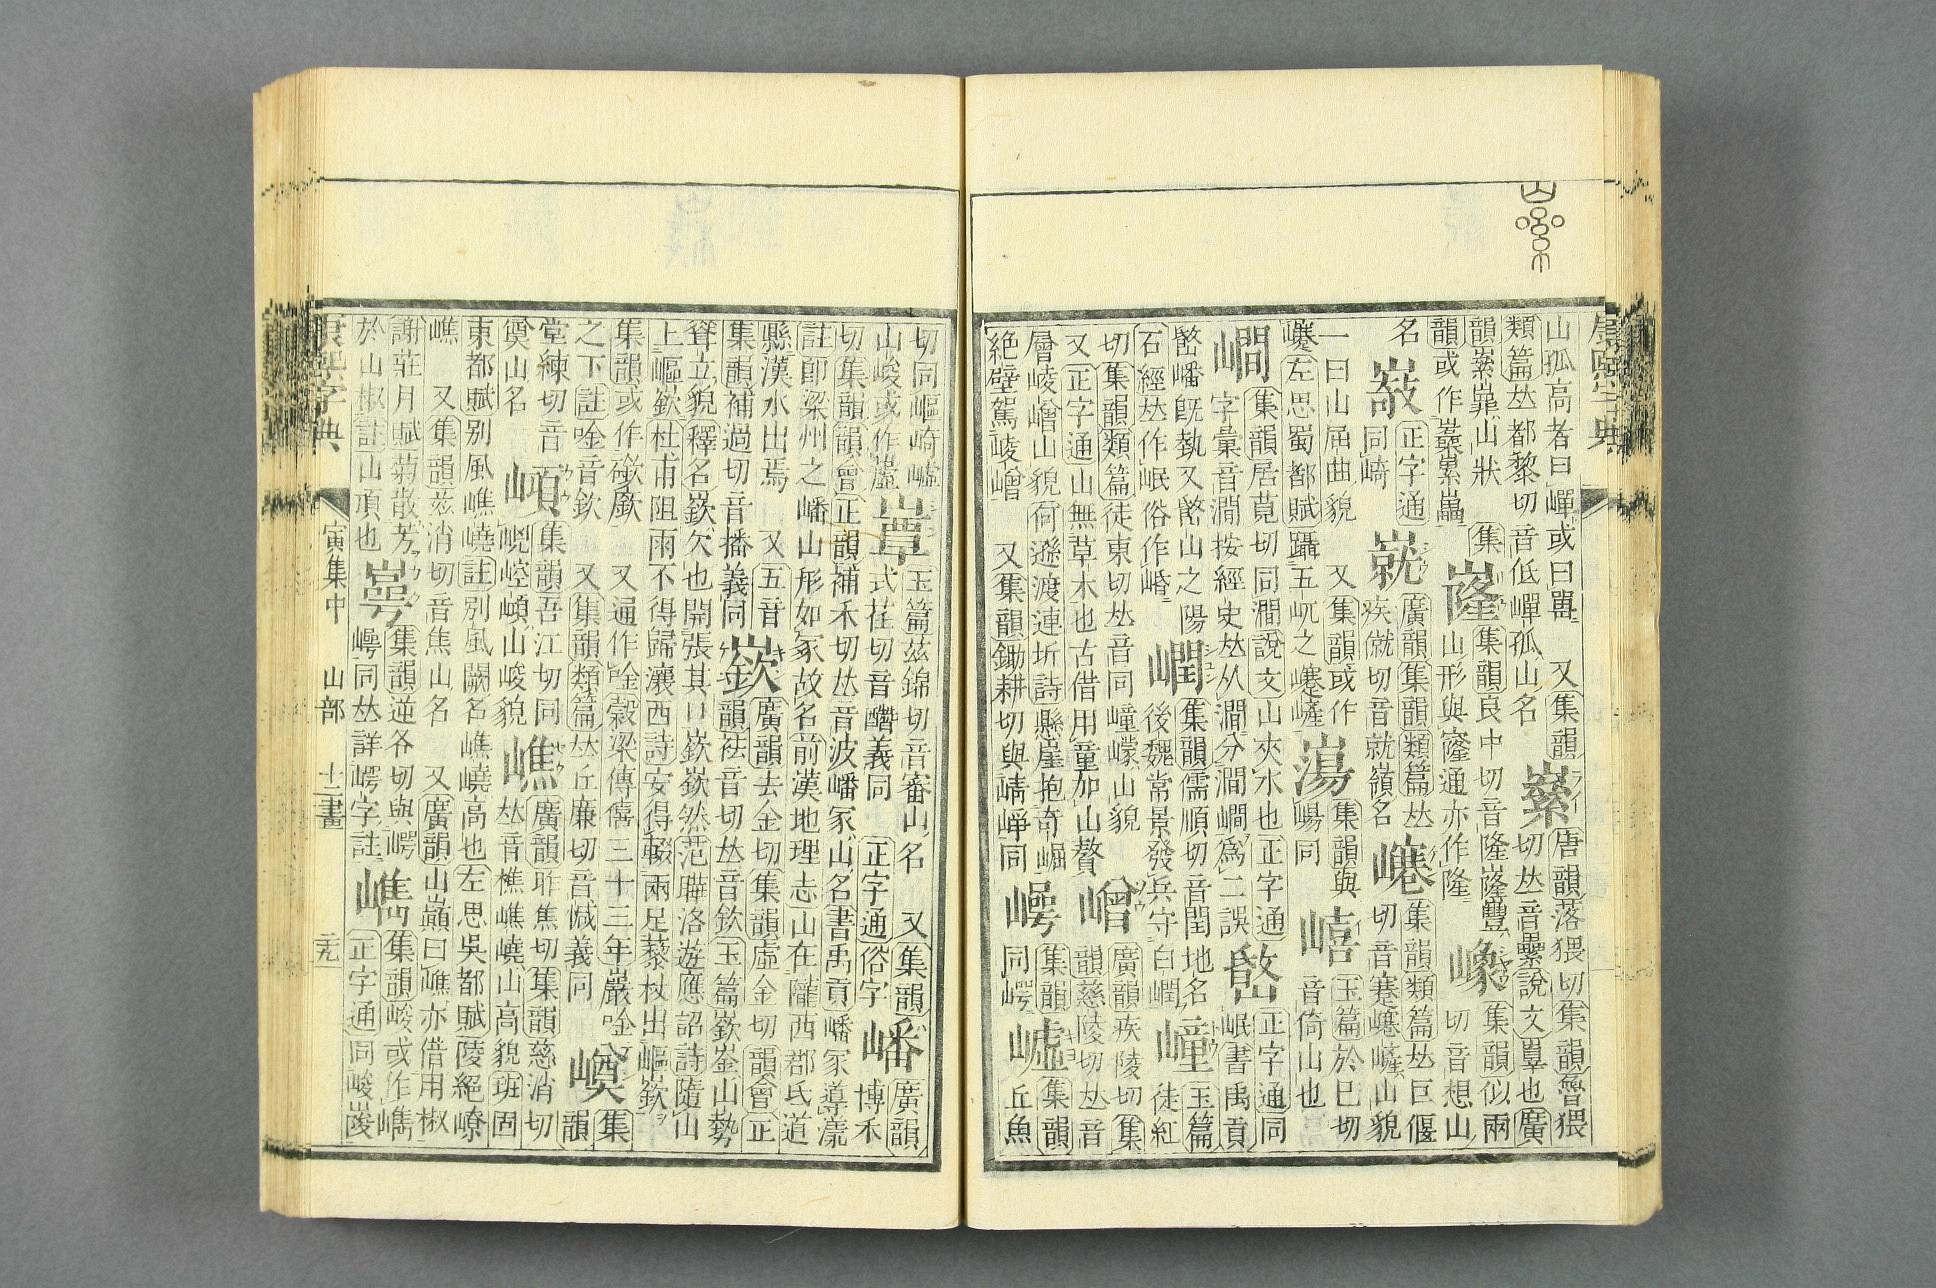 山孤高者曰嶂或曰嵒　又集韻　嶪唐韻落猥切集韻魯猥
類篇𠀤都黎切音低嶂孤山名　切𠀤音壘說文壘也廣
韻嶪嶵山狀　集韻良中切音隆嶐豐　嶑集韻似兩
韻或作藟㠥嵓　嶐山形與窿通亦作隆　切音想山
名　嶅正字通同崎　嶯廣韻集韻類篇𠀤疾僦切音就嶺名　㠇集韻類篇𠀤巨偃切音寋㠇嵼山貌
一曰山屈曲貌　又集韻或作
㠇左思蜀都賦躡五屼之㠇嵼　嵣集韻與崵同　嶬玉篇於已切音倚山也
㵎集韻居莧切同澗說文山夾水也正字通字彙音澗按經史𠀤从澗分澗嵦爲二誤　𡻕正字通同岷書禹貢
𡻕嶓旣埶又𡻕山之陽　㠈集韻儒順切音閏地名後魏常景發兵守白㠈　嶂玉篇徒紅
石經𠀤作岷俗作㟭
切集韻類篇徒東切𠀤音同嶂嶸山貌
又正字通山無草木也古借用童加山贅　嶒廣韻疾陵切集韻慈陵切𠀤音
層崚嶒山貌何遜渡連圻詩懸崖抱奇崛絕壁駕崚嶒　又集韻鋤耕切與崝崢同　㠋集韻同崿　嘘集韻丘魚
切同嶇崎嘘山峻或作㠊　嶂玉篇兹錦切音審山名　又集韻式荏切音䤐義同　正字通俗字　嶓廣韻博禾
切集韻韻會正韻補禾切𠀤音波嶓冢山名書禹貢嶓冢導漾
註卽梁州之嶓山形如冢故名前漢地理志山在隴西郡氐道
縣漢水出焉　又五音集韻補過切音播義同　嶔廣韻去金切集韻虛金切韻會正韻祛音切𠀤音欽玉篇嶔崟山勢
聳立貌釋名嶔欠也開張其口嶔嶔然范曄洛遊應詔詩隨山
上嶇嶔杜甫阻雨不得歸瀼西詩安得輟雨足藜杖出嶇嶔
集韻或作㟢廞　又通作唫穀梁傳僖三十三年巖唫
之下註唫音欽　又集韻類篇𠀤丘廉切音慽義同　嶳集韻
堂練切音奠山名　㟅集韻吾江切同嵦崆㟅山峻貌　嶕廣韻昨焦切集韻慈消切𠀤音樵嶕嶢山高貌班固
東都賦别風嶕嶢註别風闕名嶕嶢高也左思吳都賦陵絕嶛
嶕　又集韻兹消切音焦山名　又廣韻山巔曰嶕亦借用椒
謝莊月賦菊散芳於山椒註山頂也　㟧集韻逆各切與崿㠋同𠀤詳崿字註　㠎集韻峻或作㠎　正字通同峻㥄
康熙字典　寅集中　山部　十二畫　二九